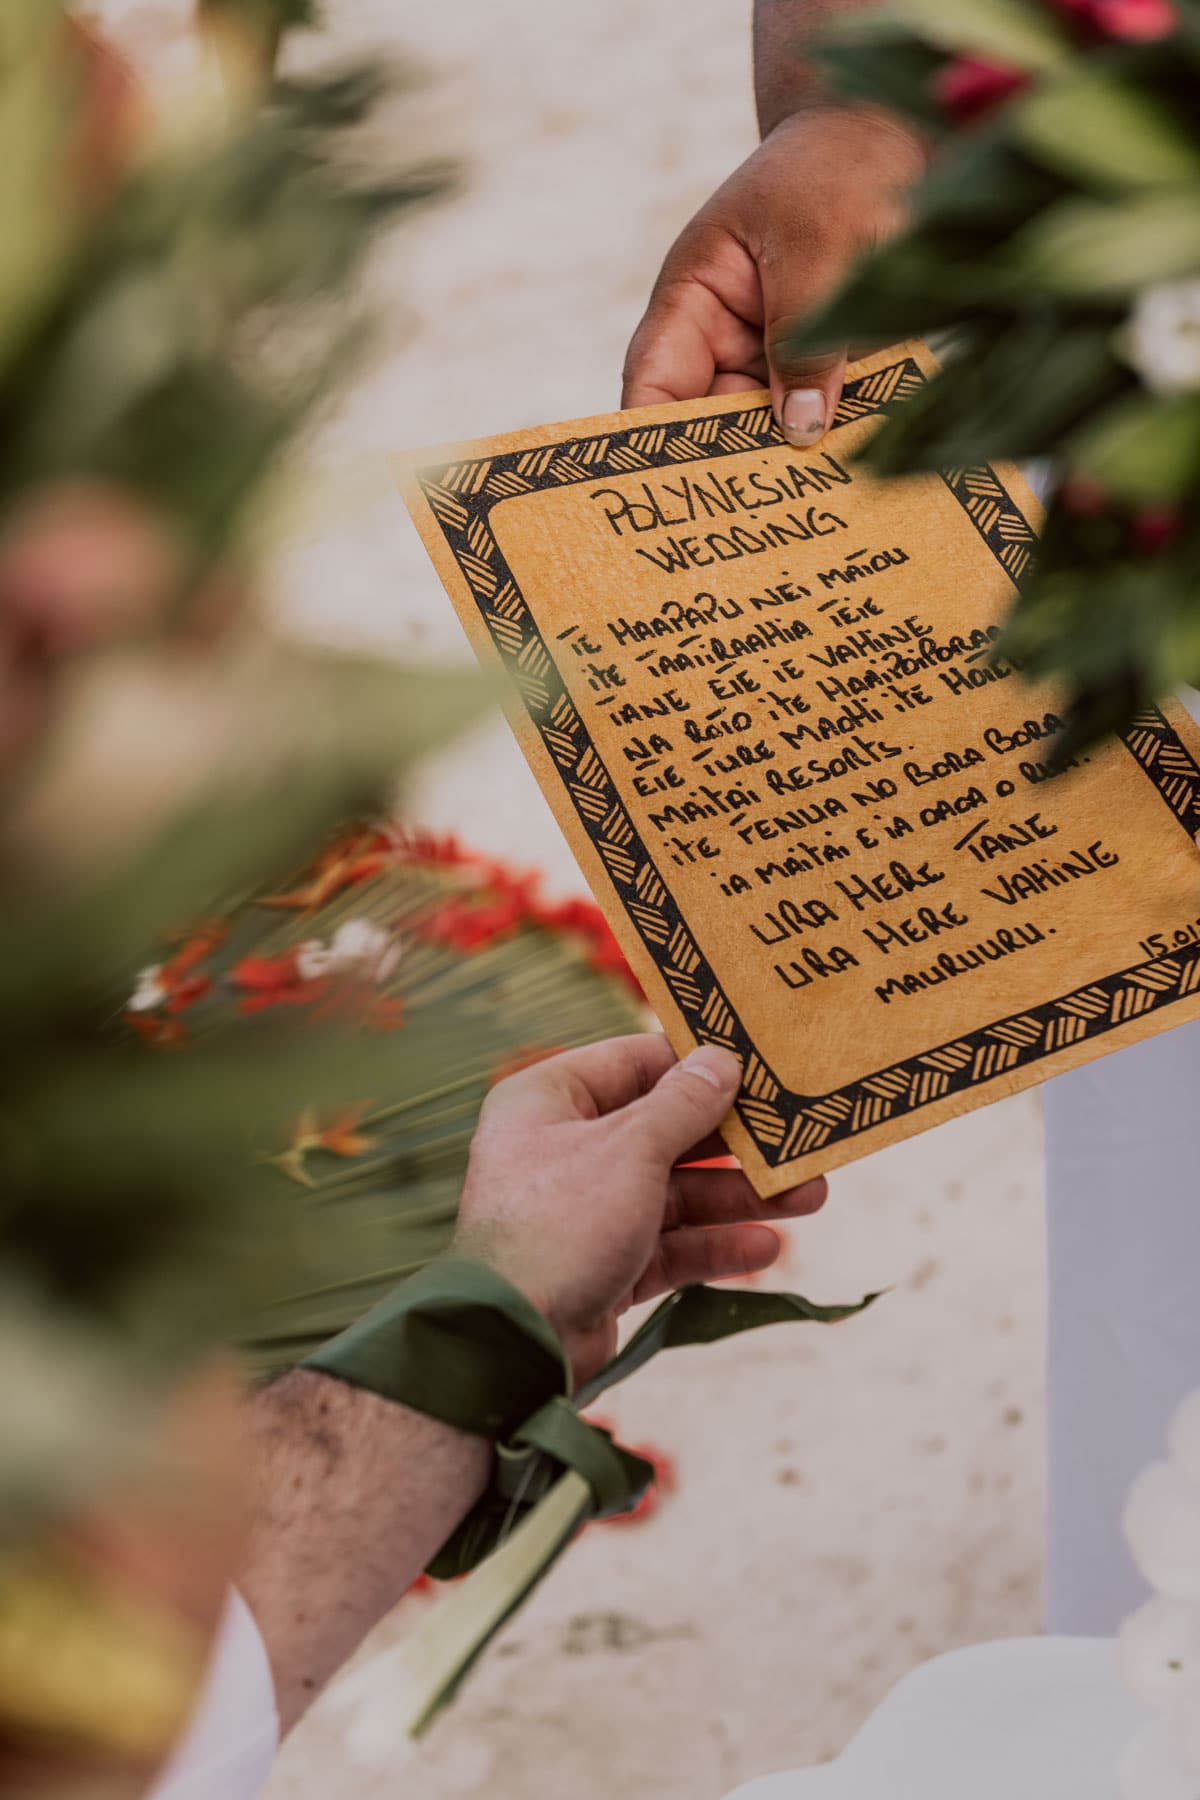 POLYNESIAN
WEDDING
TE HAAPAPU NEI MĀTOU
ITE TAATIRAAHIA TEIE
TANE EIE IE VAHINE
NA ROTO ITE HAAIPOIPORAA
EIE TURE MAOHI ITE
MAITAI RESORTS.
ITE FENUA NO BORA BORA
IA MAITAI E IA OAOA O
UIRA HERE TANE
UIRA HERE VAHINE
MAURUURU.